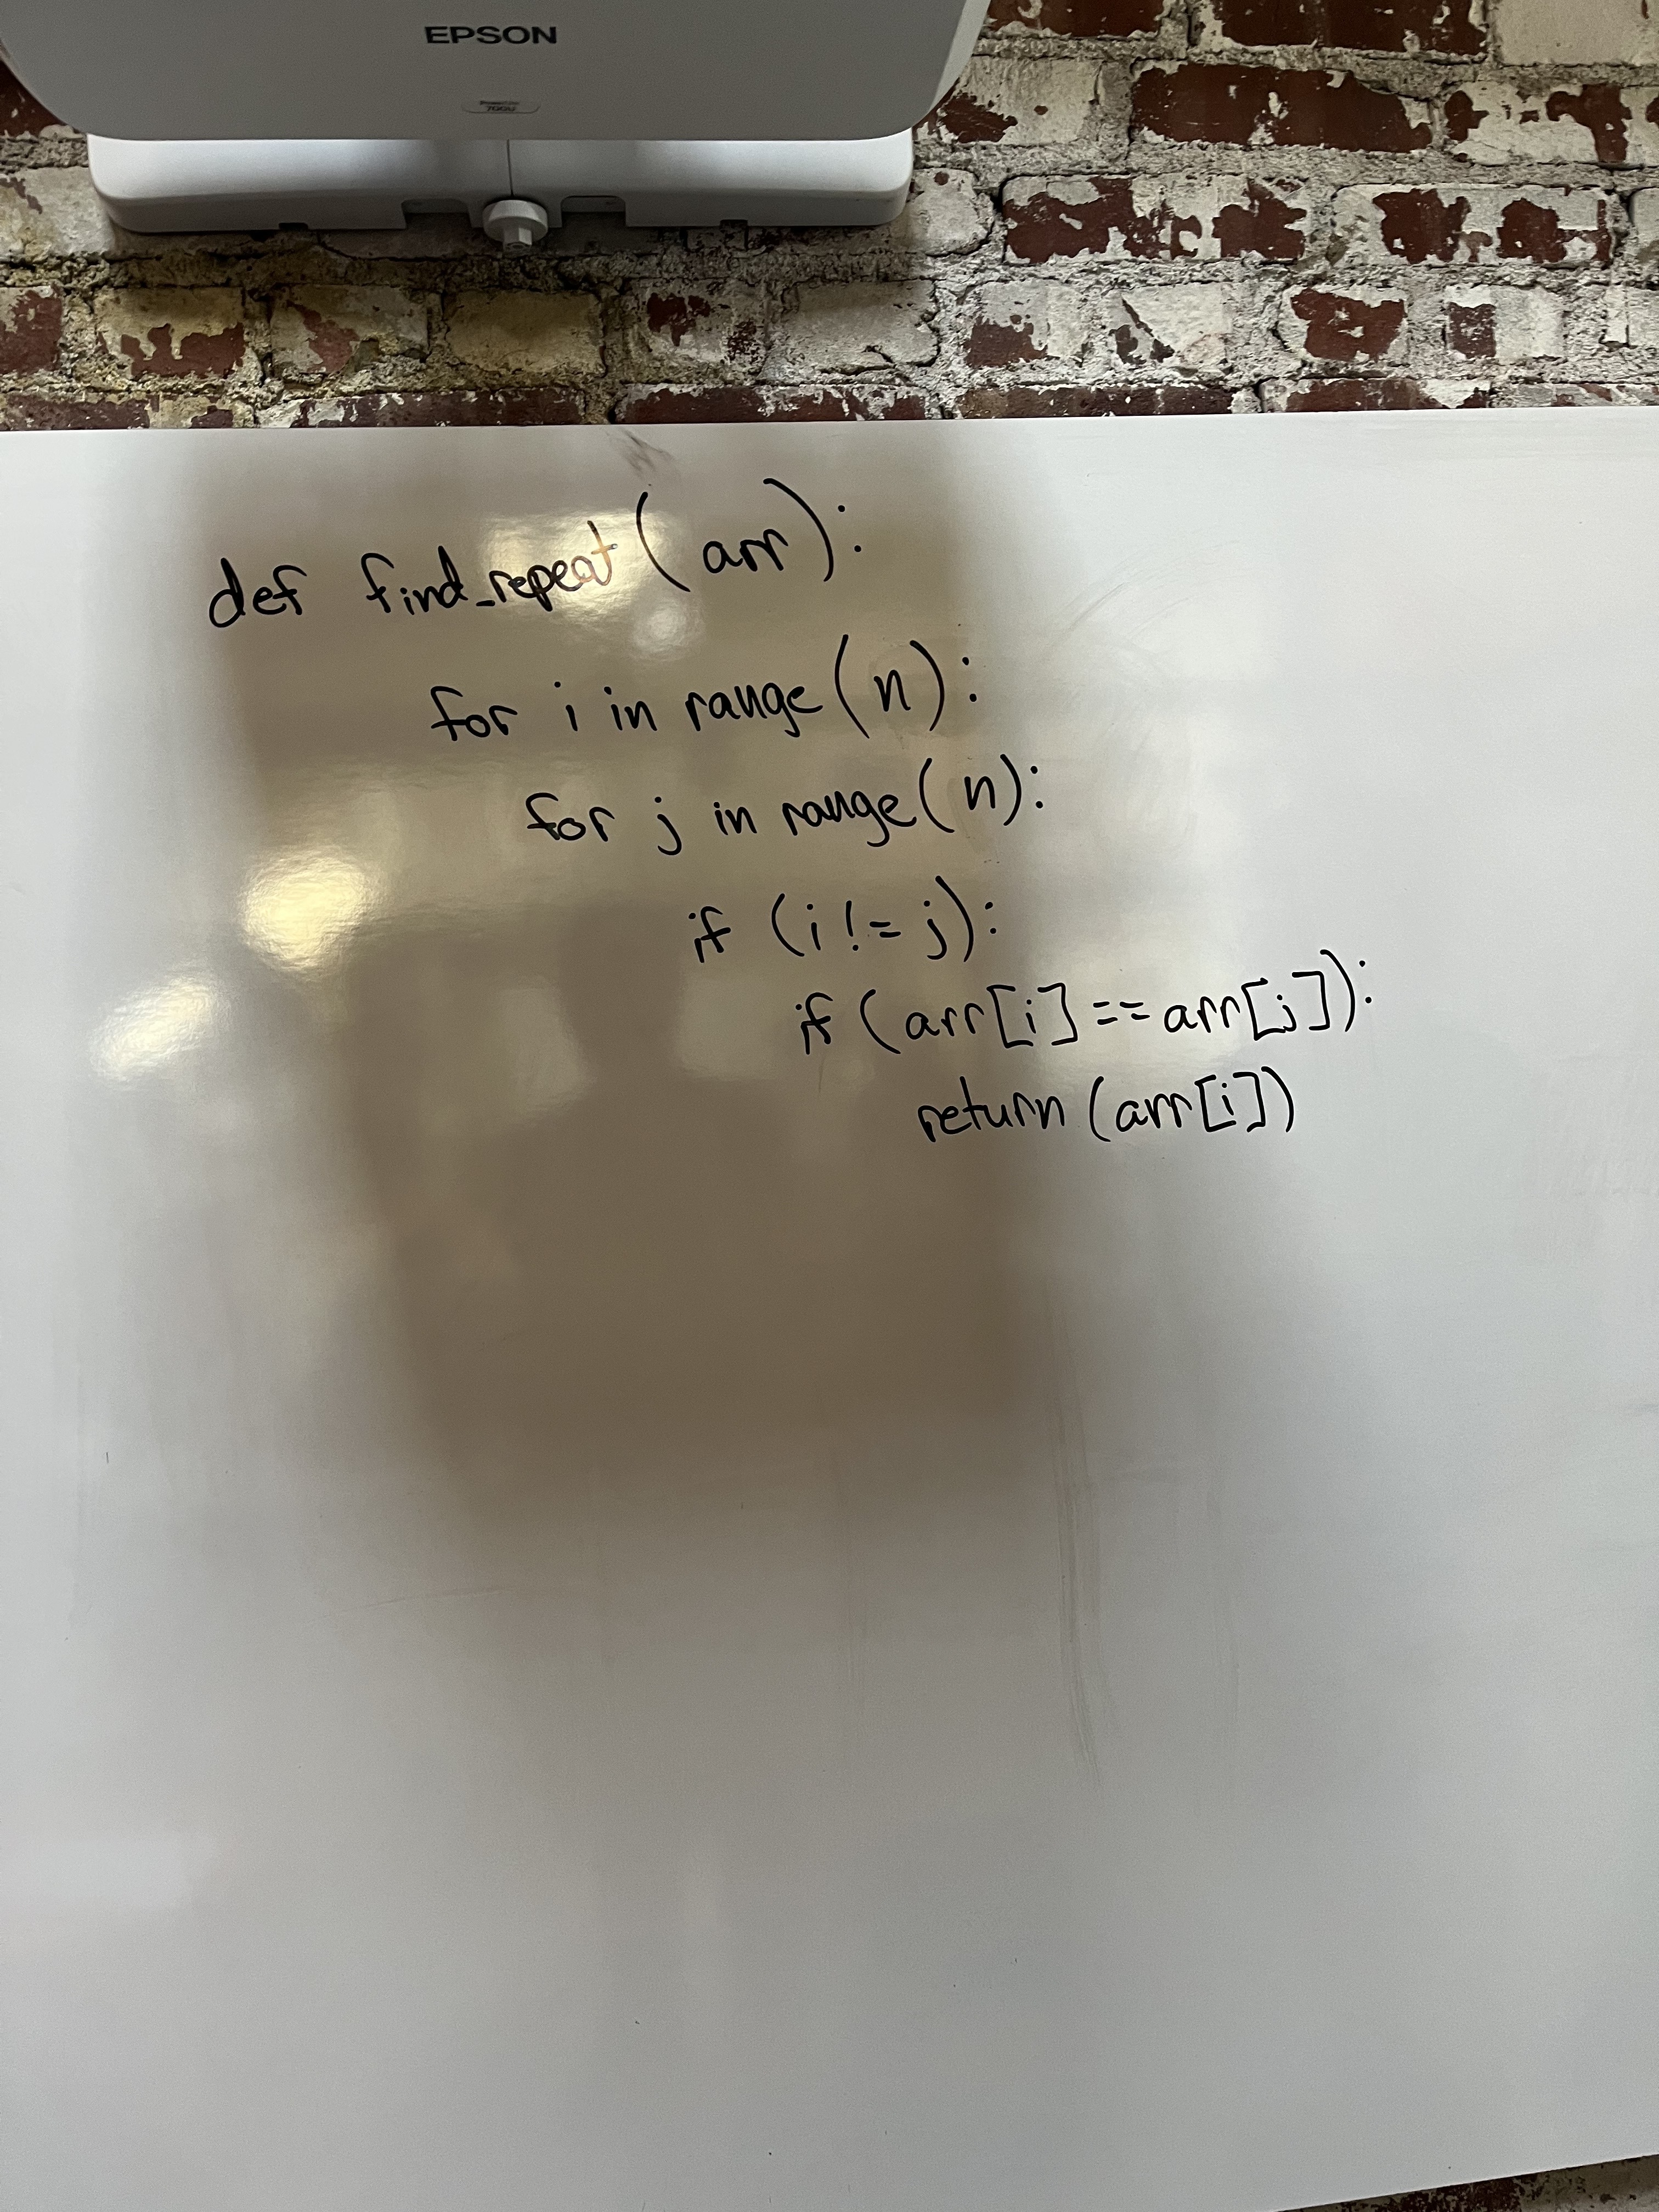 EPSON
def find_repeat (arr):
for i in range (n):
for j in range (n):
if (i != j):
if (arr[i] == arr[j]):
return (arr[i])